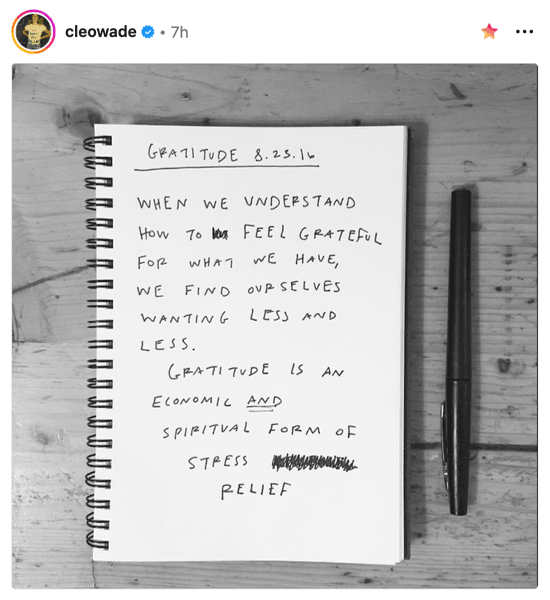 cleowade • 7h
GRATITUDE 8.23.16
WHEN WE UNDERSTAND
HOW TO FEEL GRATEFUL
FOR WHAT WE HAVE,
WE FIND OURSELVES
WANTING LESS AND
LESS.
GRATITUDE IS AN
ECONOMIC AND
SPIRITUAL FORM OF
STRESS
RELIEF